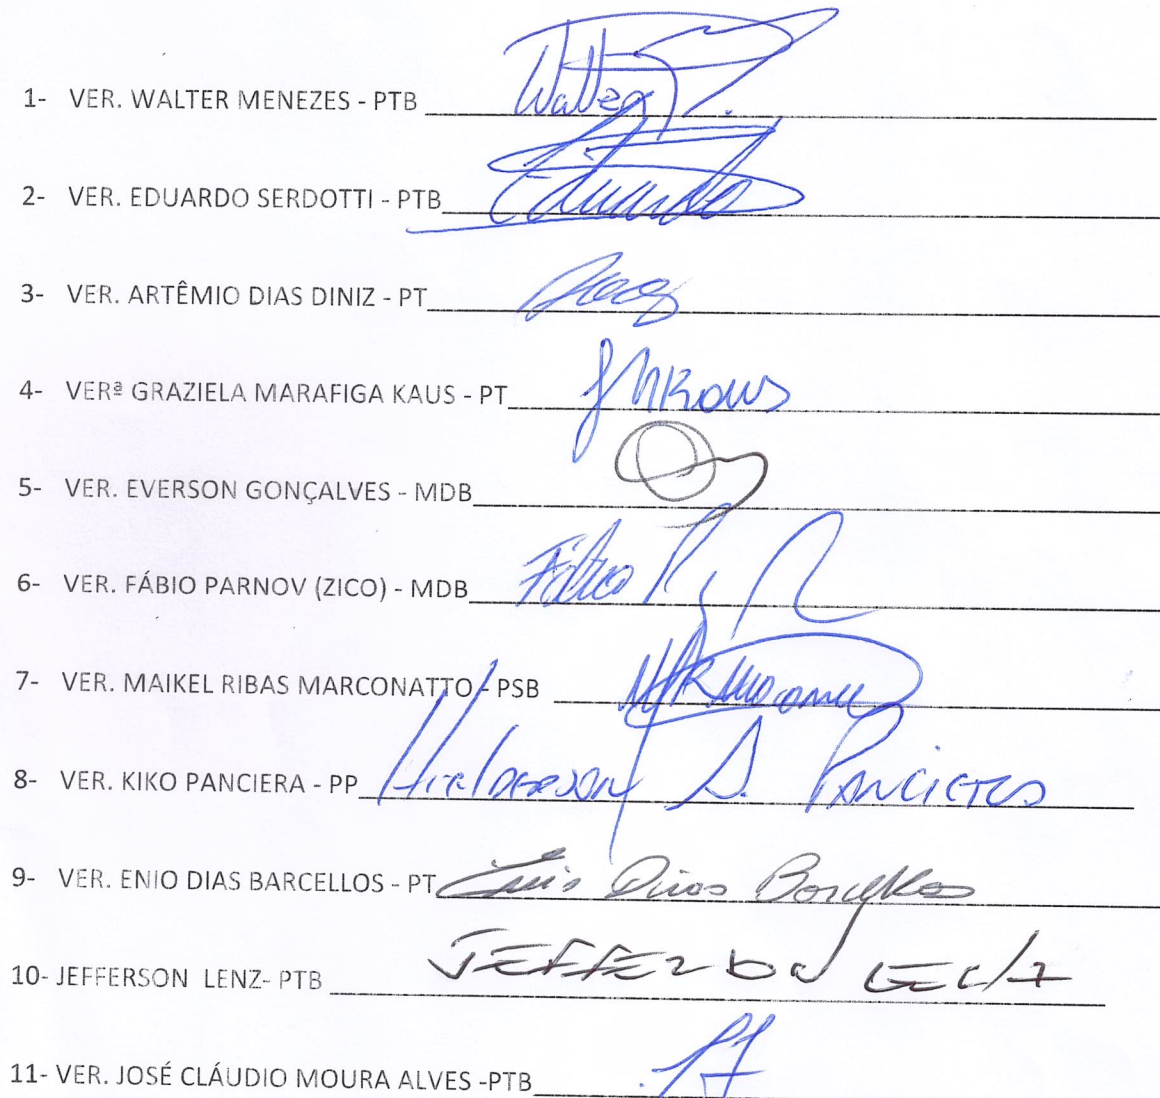 1- VER. WALTER MENEZES - PTB Walter
2- VER. EDUARDO SERDOTTI - PTB Eduardo
3- VER. ARTÊMIO DIAS DINIZ - PT
4- VERª GRAZIELA MARAFIGA KAUS - PT
5- VER. EVERSON GONÇALVES - MDB
6- VER. FÁBIO PARNOV (ZICO) - MDB Fábio
7- VER. MAIKEL RIBAS MARCONATTO - PSB
8- VER. KIKO PANCIERA - PP
9- VER. ENIO DIAS BARCELLOS - PT Enio Dias Barcellos
10- JEFFERSON LENZ- PTB JEFFERSON LENZ
11- VER. JOSÉ CLÁUDIO MOURA ALVES -PTB